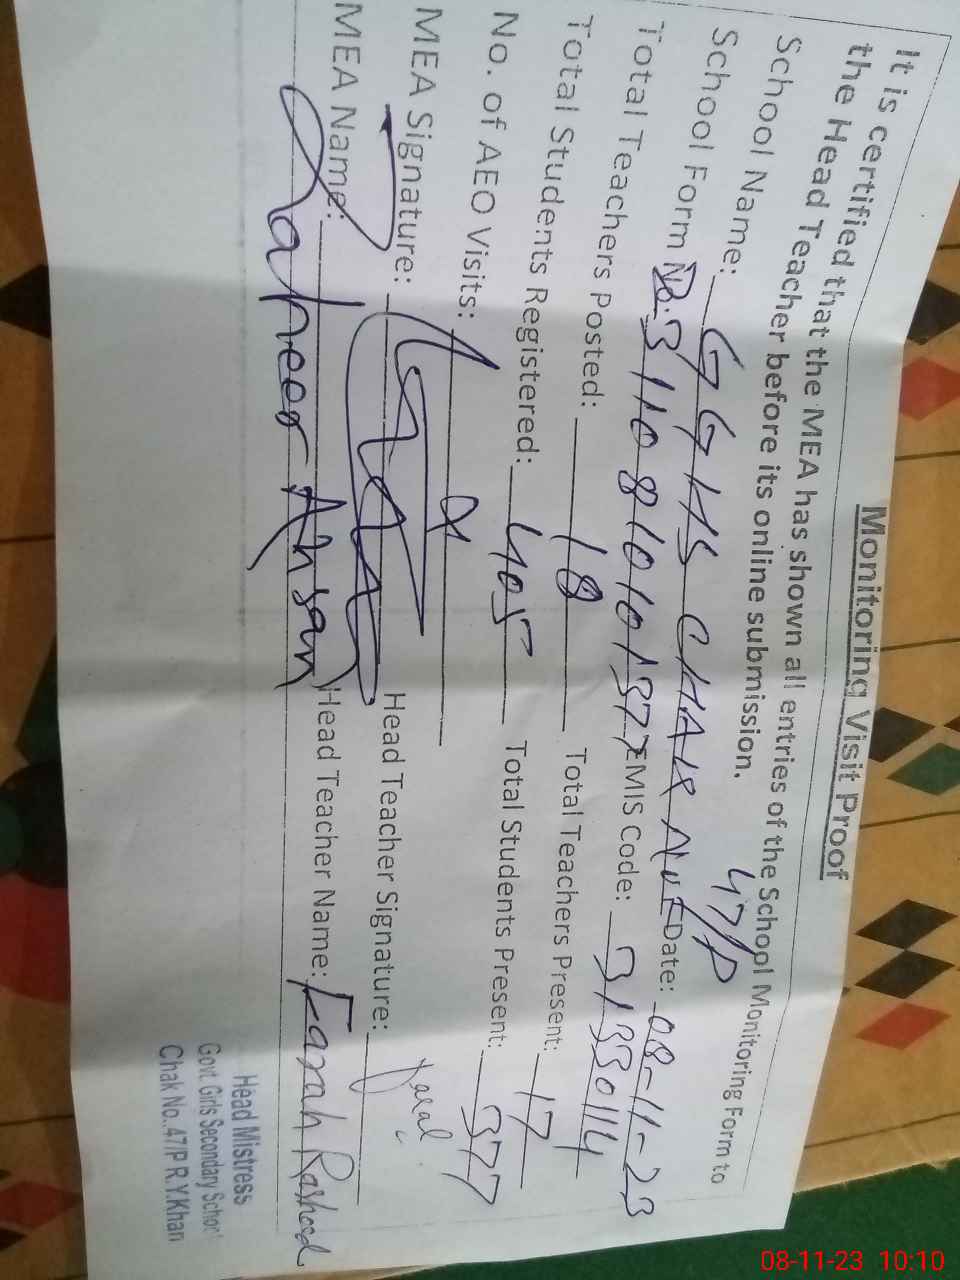 Monitoring Visit Proof
It is certified that the MEA has shown all entries of the School Monitoring Form to
the Head Teacher before its online submission.
47/P
School Name: GGHS CHAK No Date: 08-11-23
School Form No. 31108101013 77 EMIS Code: 31330114
Total Teachers Posted: 18 Total Teachers Present: 17
Total Students Registered: 405 Total Students Present: 377
No. of AEO Visits:
MEA Signature: Head Teacher Signature:
MEA Name: Zaheer Ahsan Head Teacher Name: Farah Rasheed
Head Mistress
Govt. Girls Secondary School
Chak No.47/P R.Y.Khan
08-11-23 10:10